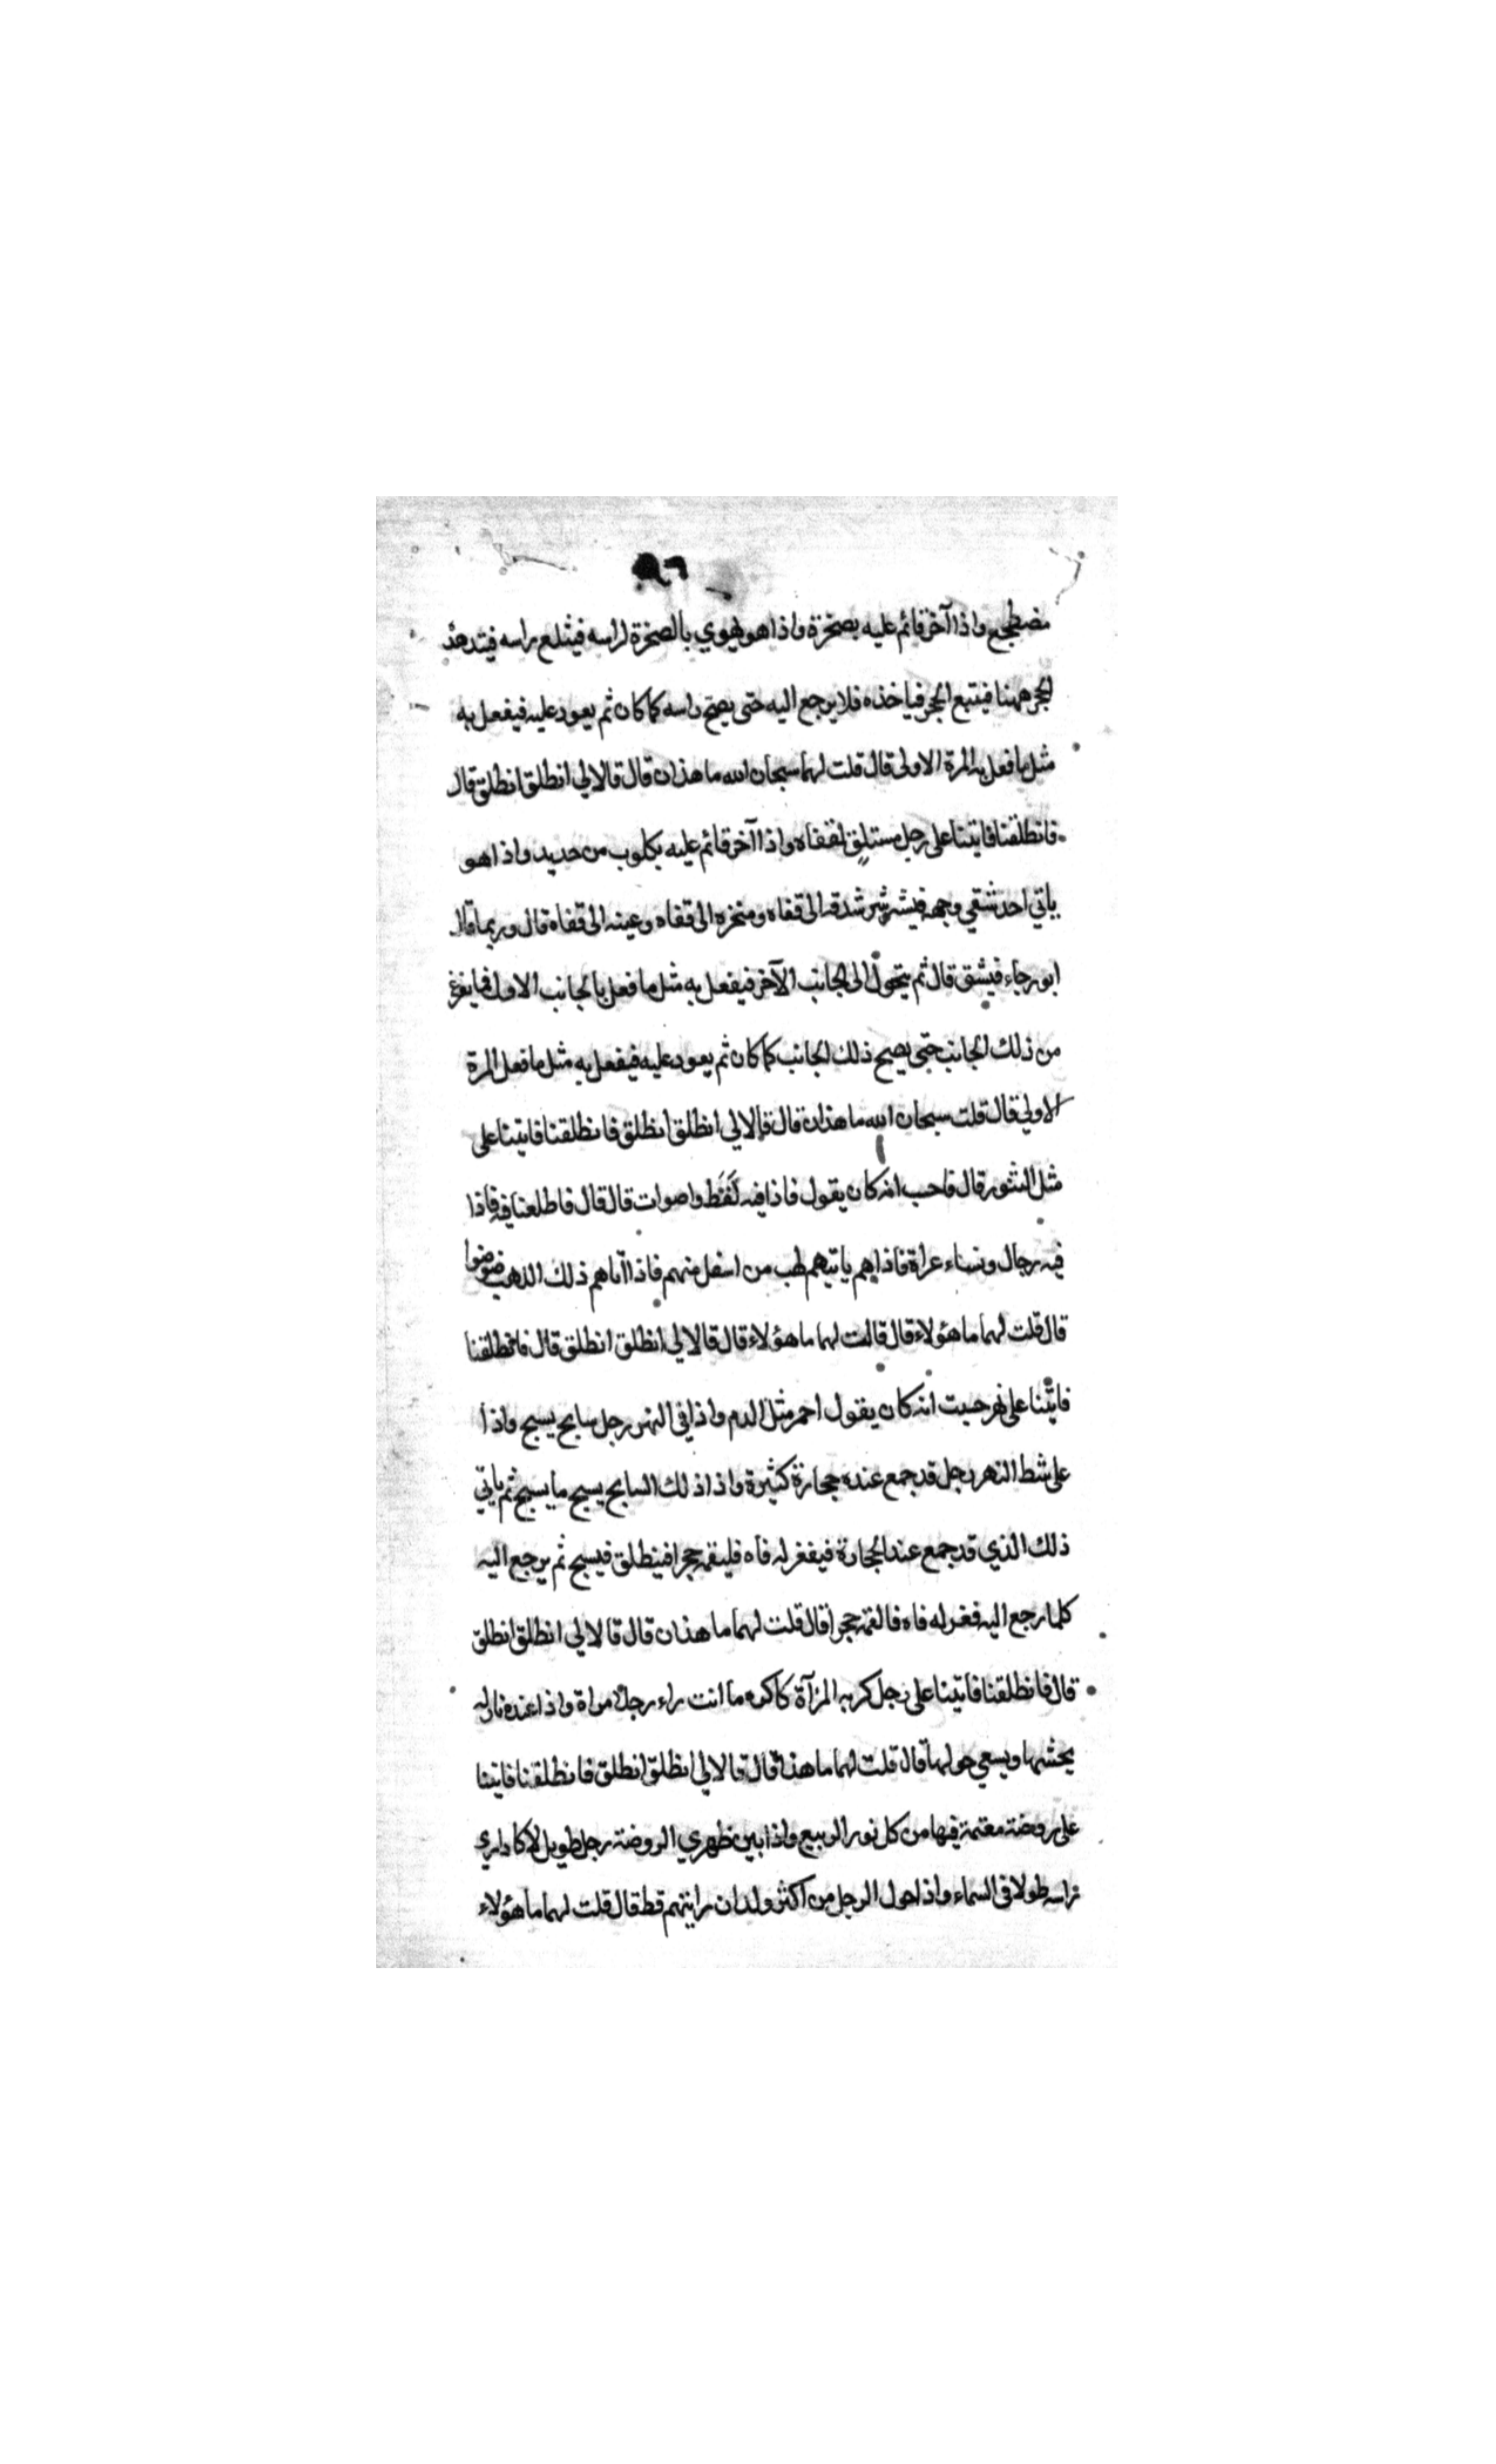 ٩٦
مضطجع واذا آخر قائم عليه بصخرة واذا هو يهوي بالصخرة لراسه فيثلع راسه فيتدهد
الحجر ههنا فيتبع الحجر فياخذه فلا يرجع اليه حتى يصح راسه كما كان ثم يعود عليه فيفعل به
مثل ما فعل به المرة الاولى قال قلت لهما سبحان الله ما هذان قال قالا لي انطلق انطلق قال
فانطلقنا فاتينا على رجل مستلق لقفاه واذا آخر قائم عليه بكلوب من حديد واذا هو
ياتي احد شقي وجهه فيشرشر شدقه الى قفاه ومنخره الى قفاه وعينه الى قفاه قال وربما قال
ابو رجاء فيشق قال ثم يتحول الى الجانب الآخر فيفعل به مثل ما فعل بالجانب الاول فما يفرغ
من ذلك الجانب حتى يصح ذلك الجانب كما كان ثم يعود عليه فيفعل به مثل ما فعل المرة
الاولى قال قلت سبحان الله ما هذان قال قالا لي انطلق انطلق فانطلقنا فاتينا على
مثل التنور قال فاحسب انه كان يقول فاذا فيه لغط واصوات قال قال فاطلعنا فيه فاذا
فيه رجال ونساء عراة فاذا هم ياتيهم لهب من اسفل منهم فاذا اتاهم ذلك اللهب ضوضوا
قال قلت لهما ما هؤلاء قال قالت لهما ما هؤلاء قال قالا لي انطلق انطلق قال فانطلقنا
فاتينا على نهر حسبت انه كان يقول احمر مثل الدم واذا في النهر رجل سابح يسبح واذا
على شط النهر رجل قد جمع عنده حجارة كثيرة واذا ذلك السابح يسبح ما يسبح ثم ياتي
ذلك الذي قد جمع عند الحجارة فيفغر له فاه فليقمه حجرا فينطلق فيسبح ثم يرجع اليه
كلما رجع اليه فغر له فاه فالقمه حجرا قال قلت لهما ما هذان قال قالا لي انطلق انطلق
قال فانطلقنا فاتينا على رجل كريه المرآة كاكره ما انت راء رجلا مراة واذا عنده نار له
يحشها ويسعى حولها قال قلت لهما ما هذا قال قالا لي انطلق انطلق فانطلقنا فاتينا
على روضة معتمة فيها من كل نور الربيع واذا بين ظهري الروضة رجل طويل لا اكاد اري
راسه طولا في السماء واذا حول الرجل من اكثر ولدان رايتهم قط قال قلت لهما ما هؤلاء